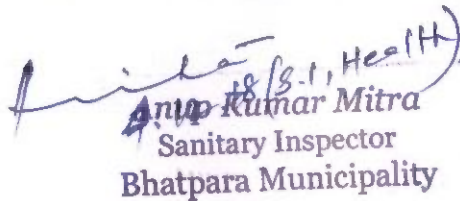 (S.I, Health)
Anup Kumar Mitra
Sanitary Inspector
Bhatpara Municipality